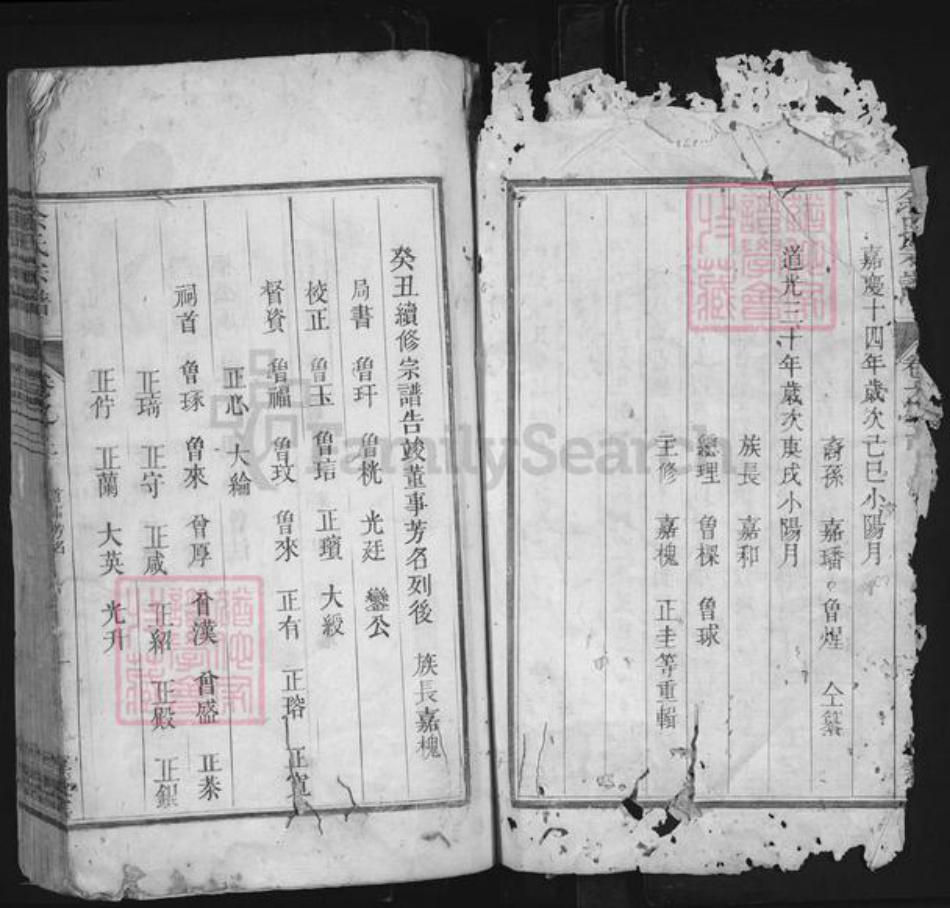 嘉慶十四年歲次己巳小陽月
裔孫 嘉璠 魯煋 仝纂
道光三十年歲次庚戌小陽月
族長 嘉和
總理 魯樑 魯球
主修 嘉槐 正圭等重輯
癸丑續修宗譜告竣董事芳名列後 族長嘉槐
局書 魯玕 魯桄 光廷 鑾公
校正 魯玉 魯琂 正璸 大綬
督資 魯福 魯玟 魯來 正有 正瑢 正寬
正心 大綸
祠首 魯琢 魯來 曾厚 曾漢 曾盛 正泰
正琦 正守 正咸 正紹 正殿 正銀
正佇 正蘭 大英 光升
余氏宗譜
FamilySearch